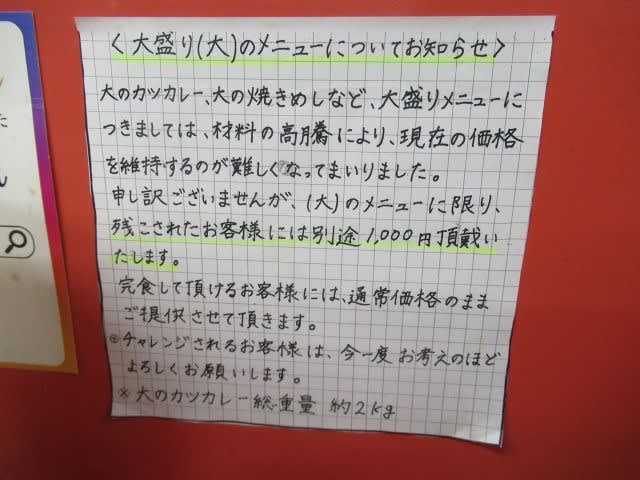 〈大盛り(大)のメニューについてお知らせ〉
大のカツカレー、大の焼きめしなど、大盛りメニューに
つきましては、材料の高騰により、現在の価格
を維持するのが難しくなってまいりました。
申し訳ございませんが、(大)のメニューに限り、
残こされたお客様には別途1,000円頂戴い
たします。
完食して頂けるお客様には、通常価格のまま
ご提供させて頂きます。
◎チャレンジされるお客様は、今一度お考えのほど
よろしくお願いします。
※大のカツカレー総重量 約2kg
た
ん